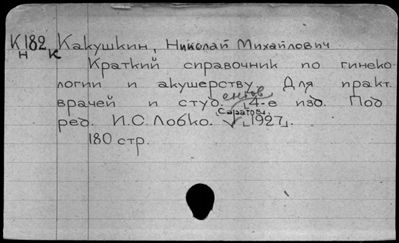 К182 Какушкин, Николай Михайлович
н к
Краткий справочник по гинеко-
логии и акушерству. Для практ.
врачей и студ. 4-е изд. Под
ентов
Саратов
ред. И.С. Лобко. 1927.
180 стр.